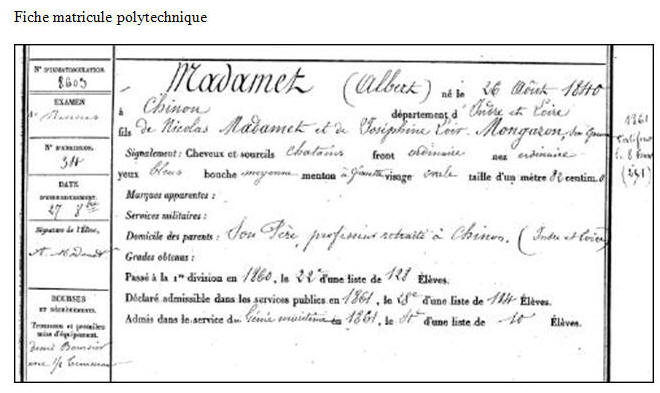 Fiche matricule polytechnique
N° D'IMMATRICULATION.
8603
EXAMEN
Rennes
N° D'ADMISSION.
34
DATE
D'ENREGISTREMENT.
27 8bre
Signature de l'Élève.
A. Madamet
BOURSES
ET DÉGRÈVEMENTS.
Trousseau et première
mise d'équipement.
demi Boursier
Madamet (Albert) né le 26 Août 1840
à Chinon département d'Indre et Loire
fils de Nicolas Madamet et de Joséphine Loir-Mongazon, son épouse
Signalement : Cheveux et sourcils chatains front ordinaire nez ordinaire
yeux bleus bouche moyenne menton à fossette visage ovale taille d'un mètre 82 centim.
Marques apparentes :
Services militaires :
Domicile des parents : Son Père, professeur retraité à Chinon. (Indre et Loire)
Grades obtenus :
Passé à la 1re division en 1860, le 22e d'une liste de 128 Élèves.
Déclaré admissible dans les services publics en 1861, le 28e d'une liste de 124 Élèves.
Admis dans le service du Génie maritime en 1861, le d'une liste de 10 Élèves.
1861